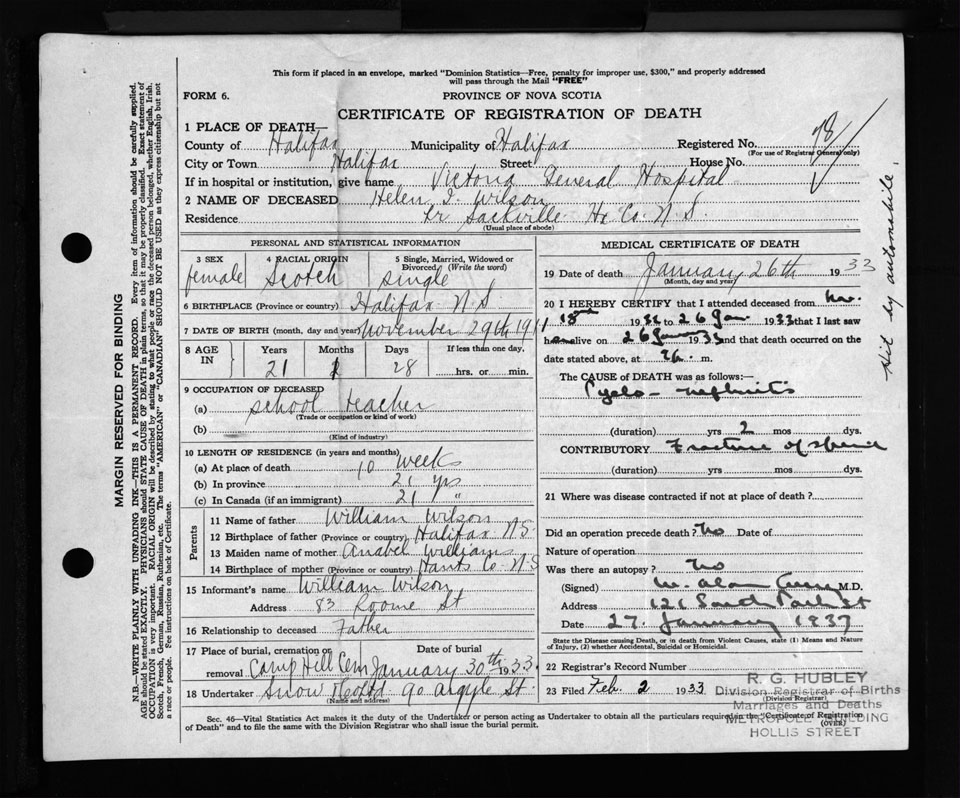 This form if placed in an envelope, marked "Dominion Statistics—Free, penalty for improper use, $300," and properly addressed
will pass through the Mail "FREE"
FORM 6.
PROVINCE OF NOVA SCOTIA
CERTIFICATE OF REGISTRATION OF DEATH
1 PLACE OF DEATH—
County of Halifax Municipality of Halifax Registered No. 78
(For use of Registrar General only)
City or Town Halifax Street House No.
If in hospital or institution, give name Victoria General Hospital
2 NAME OF DECEASED Helen I. Wilson
Residence Lr Sackville Hx Co. N S.
(Usual place of abode)
Hit by automobile
MARGIN RESERVED FOR BINDING
N.B.—WRITE PLAINLY WITH UNFADING INK—THIS IS A PERMANENT RECORD. Every item of information should be carefully supplied.
AGE should be stated EXACTLY. PHYSICIANS should STATE CAUSE OF DEATH in plain terms, so that it may be properly classified. Exact statement of
OCCUPATION is very important. RACIAL ORIGIN will be described by stating to what people or race the deceased person belonged, whether English, Irish,
Scotch, French, German, Russian, Ruthenian, etc. The terms "AMERICAN" or "CANADIAN" SHOULD NOT BE USED as they express citizenship but not
a race or people. See instructions on back of Certificate.
PERSONAL AND STATISTICAL INFORMATION
3 SEX
female
4 RACIAL ORIGIN
Scotch
5 Single, Married, Widowed or
Divorced (Write the word)
single
6 BIRTHPLACE (Province or country) Halifax N S
7 DATE OF BIRTH (month, day and year) November 29th 1911
8 AGE IN
Years Months Days If less than one day,
21 1 28 hrs. or min.
9 OCCUPATION OF DECEASED
(a) school teacher
(Trade or occupation or kind of work)
(b)
(Kind of industry)
10 LENGTH OF RESIDENCE (in years and months)
(a) At place of death 10 weeks
(b) In province 21 yrs
(c) In Canada (if an immigrant) 21 "
Parents
11 Name of father William Wilson
12 Birthplace of father (Province or country) Halifax N S.
13 Maiden name of mother Anabel Williams
14 Birthplace of mother (Province or country) Hants Co. N S
15 Informant's name William Wilson
Address 83 Roome St
16 Relationship to deceased Father
17 Place of burial, cremation or removal Date of burial
Camp Hill Cem January 30th 1933.
18 Undertaker Snow & Co Ltd 90 Argyle St.
(Name and address)
MEDICAL CERTIFICATE OF DEATH
19 Date of death January 26th 1933
(Month, day and year)
20 I HEREBY CERTIFY that I attended deceased from Nov.
18 1932 to 26 Jan 1933 that I last saw
h alive on 26 January 1933 and that death occurred on the
date stated above, at m.
The CAUSE OF DEATH was as follows:—
Pyelo-nephritis
(duration) yrs 2 mos dys.
CONTRIBUTORY Fracture of spine
(duration) yrs mos dys.
21 Where was disease contracted if not at place of death?
Did an operation precede death? No Date of
Nature of operation
Was there an autopsy? No
(Signed) W. Alan Curry M.D.
Address 121 South Park St
Date 27. January 1933
State the Disease causing Death, or in death from Violent Causes, state (1) Means and Nature
of Injury, (2) whether Accidental, Suicidal or Homicidal.
22 Registrar's Record Number
23 Filed Feb. 2 1933
(Division Registrar)
R. G. HUBLEY
Division Registrar of Births
Marriages and Deaths
METROPOLE BUILDING
HOLLIS STREET
Sec. 46—Vital Statistics Act makes it the duty of the Undertaker or person acting as Undertaker to obtain all the particulars required in the "Certificate of Registration
of Death" and to file the same with the Division Registrar who shall issue the burial permit.
(OVER)